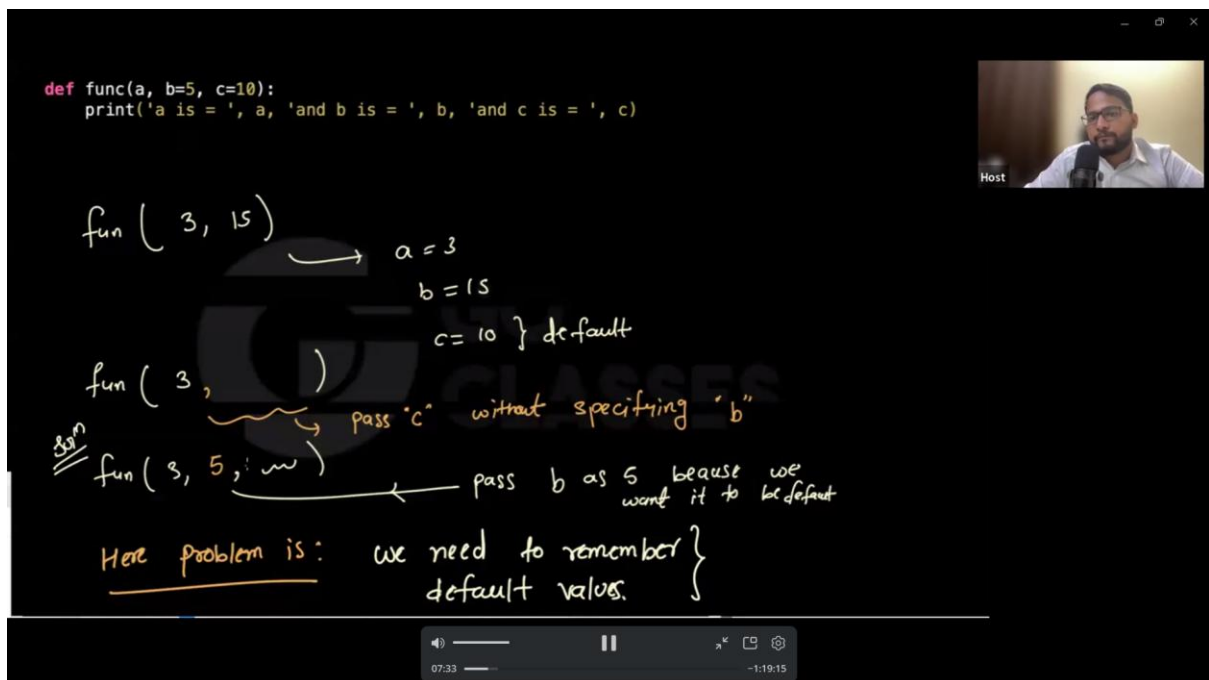 def func(a, b=5, c=10):
print('a is = ', a, 'and b is = ', b, 'and c is = ', c)
Host
fun ( 3, 15)
a = 3
b = 15
c = 10 } default
GO
CLASSES
fun ( 3, )
pass "c" without specifying "b"
Solⁿ
fun ( 3, 5, )
pass b as 5 beause we
want it to be default
Here problem is: we need to remember }
default values.
07:33
-1:19:15